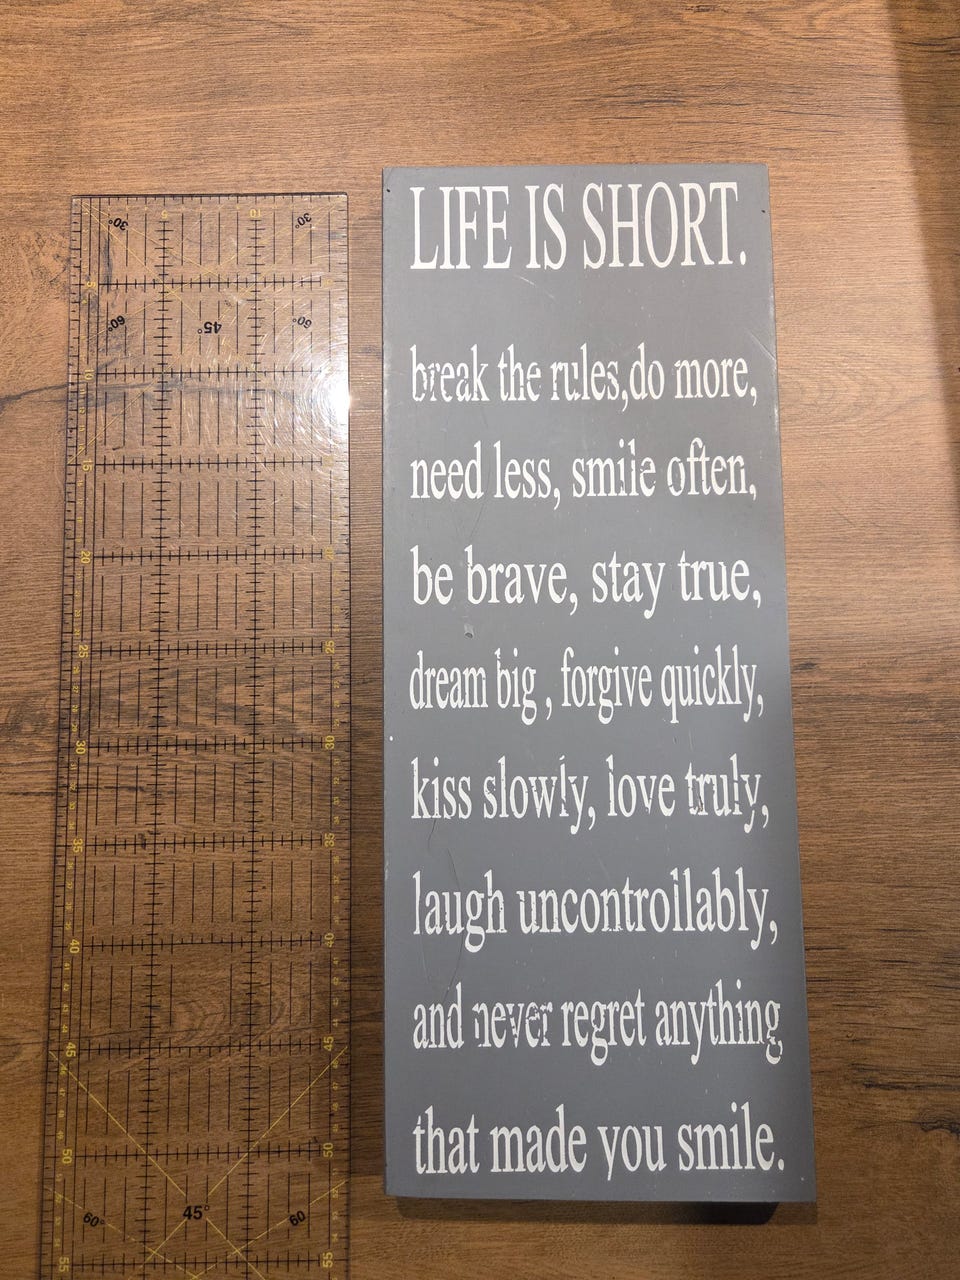 LIFE IS SHORT.
break the rules,do more,
need less, smile often,
be brave, stay true,
dream big , forgive quickly,
kiss slowly, love truly,
laugh uncontrollably,
and never regret anything
that made you smile.
30° 5 10 30°
5
60° 45° 60°
10
15
20
25 25
30 30
35 35
40 40
45 45
50 50
60° 45° 60
55 55